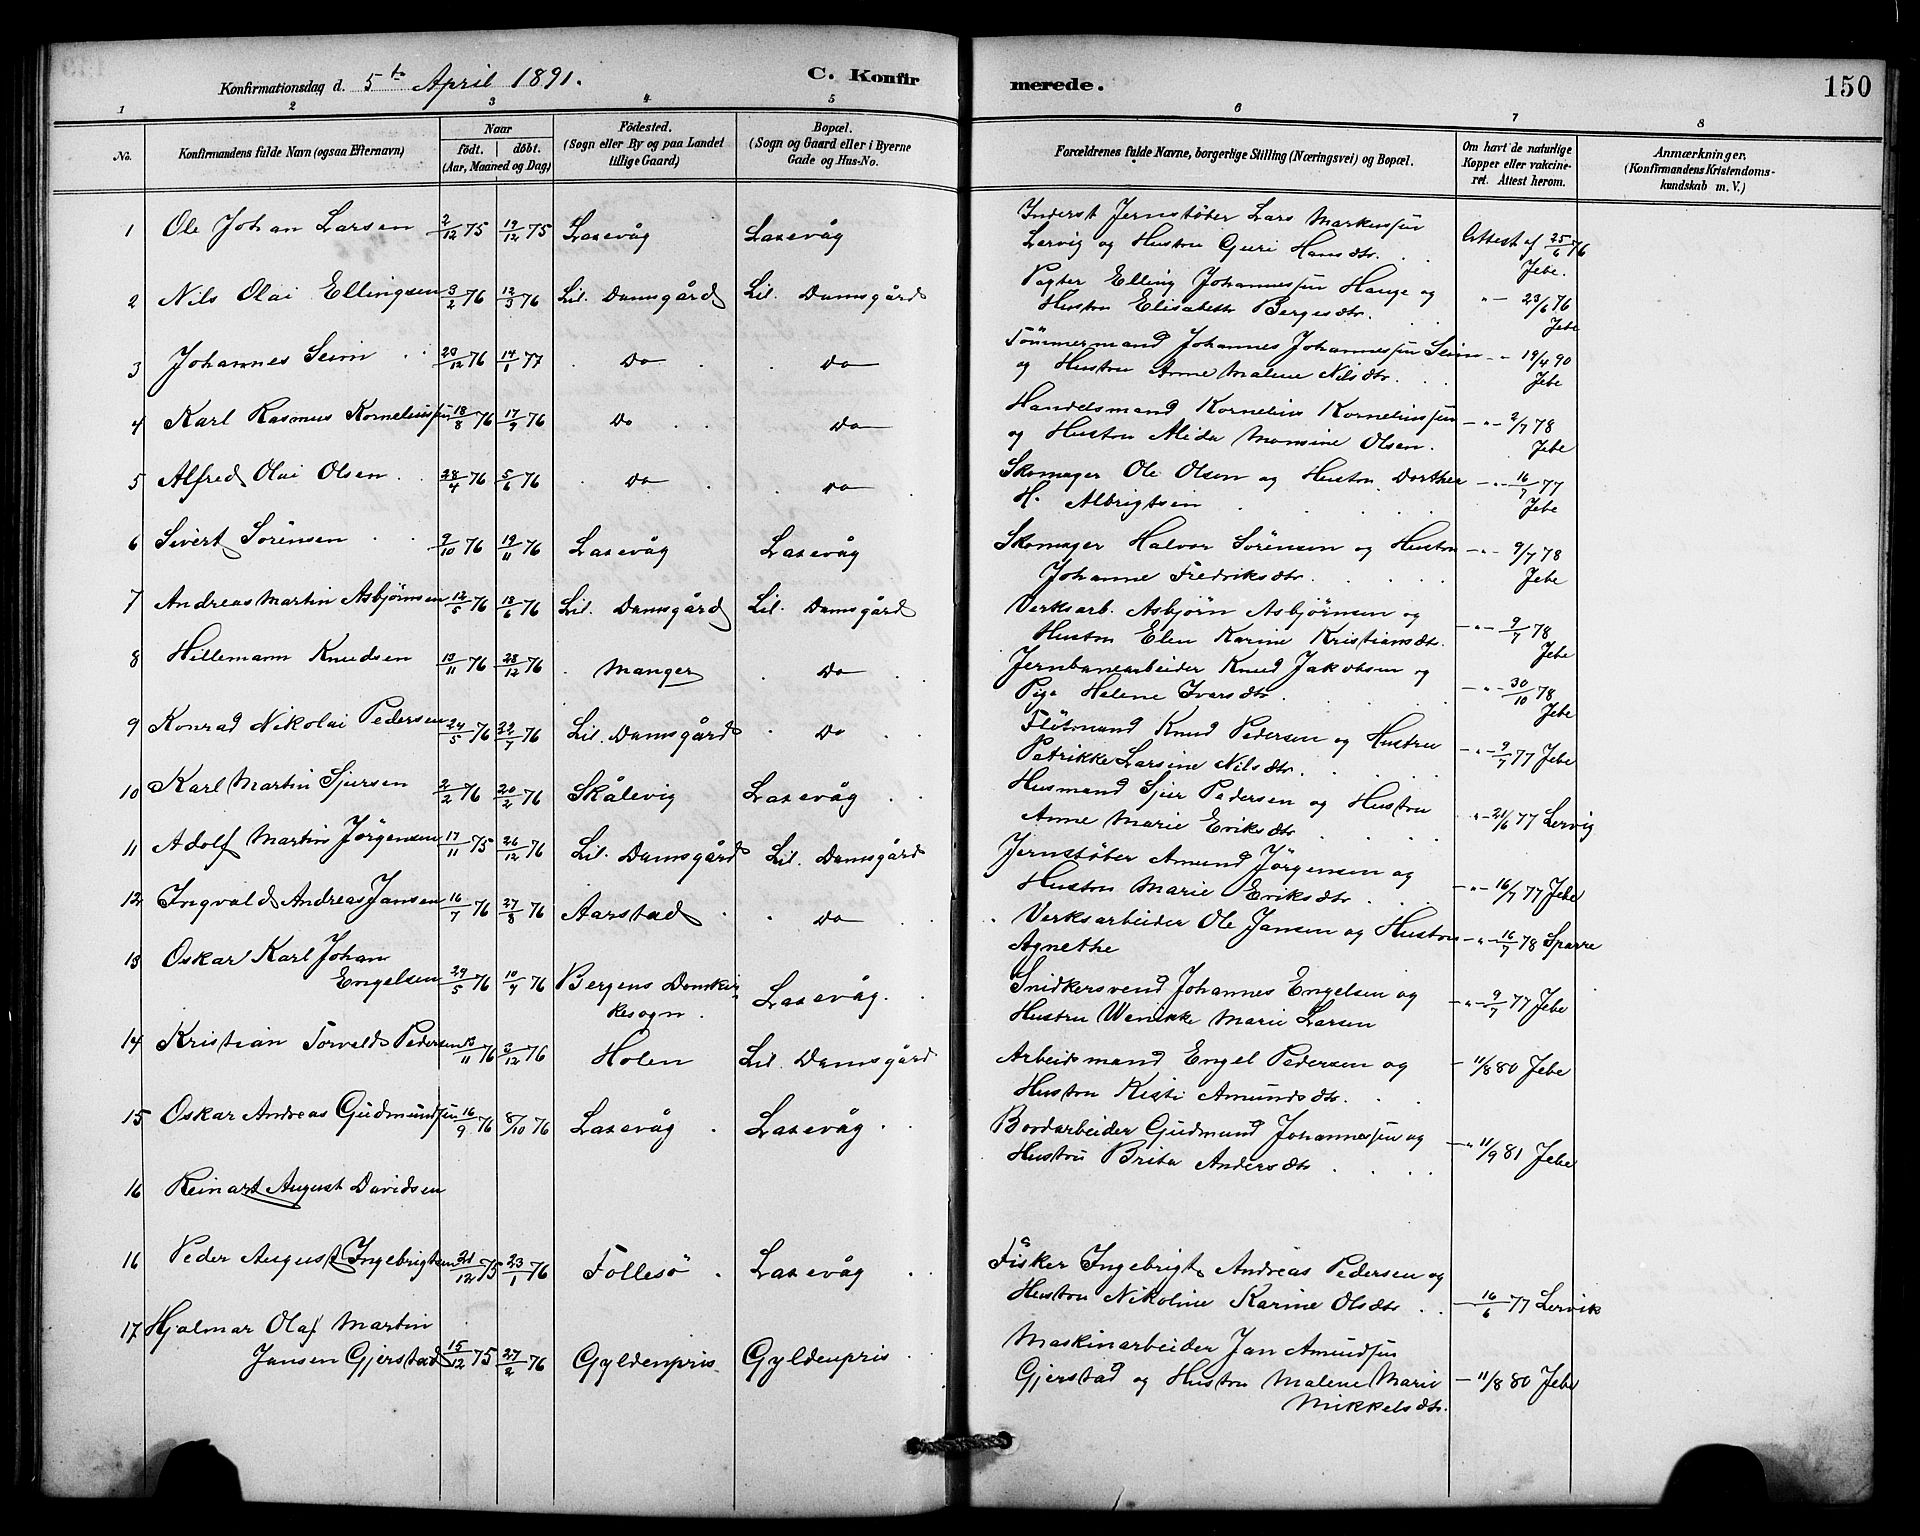 Konfirmationsdag d. 5te April 1891.
C. Konfirmerede.
150
1 2 3 4 5 6 7 8
No.
Konfirmandens fulde Navn (ogsaa Efternavn)
Naar
födt. döbt.
(Aar, Maaned og Dag)
Födested.
(Sogn eller By og paa Landet
tillige Gaard)
Bopæl.
(Sogn og Gaard eller i Byerne
Gade og Hus-No.
Forældrenes fulde Navne, borgerlige Stilling (Næringsvei) og Bopæl.
Om havt de naturlige
Kopper eller vakcine-
ret. Attest herom.
Anmærkninger.
(Konfirmandens Kristendoms-
kundskab m. V.)
1 Ole Johan Larsen 2/12 75 19/12 75 Laxevåg Laxevåg Inderst Jernstøber Lars Markussen
Lervig og Hustru Guri Hansdtr. Attest af 25/6 76
Jebe.
2 Nils Olai Ellingsen 3/2 76 12/3 76 Lil. Damsgård Lil. Damsgård Pagter Elling Johannessen Hauge og
Hustru Elisabeth Bergesdtr. " 23/6 76
Jebe
3 Johannes Seim 23/12 76 14/1 77 Do Do Tömmermand Johannes Johannessen Seim
og Hustru Anne Malene Nilsdtr. " 19/4 90
Jebe
4 Karl Rasmus Korneliussen 18/8 76 17/9 76 Do Do Handelsmand Kornelius Korneliussen
og Hustru Alida Monsine Olsen. " 2/7 78
Jebe
5 Alfred Olai Olsen 28/4 76 5/6 76 Do Do Skomager Ole Olsen og Hustru Dorthea
H. Albrigtsen " 16/7 77
Jebe
6 Sivert Sörensen 9/10 76 19/11 76 Laxevåg Laxevåg Skomager Halvor Sörensen og Hustru
Johanne Fredriksdtr. " 9/7 78
Jebe
7 Andreas Martin Asbjörnsen 12/5 76 18/6 76 Lil. Damsgård Lil. Damsgård Verksarb. Asbjörn Asbjörnsen og
Hustru Elen Karine Kristiansdtr. " 9/7 78
Jebe
8 Hillemann Knudsen 13/11 76 28/12 76 Manger Do Jernbanearbeider Knud Jakobsen og
Pige Helene Ivarsdtr. " 30/10 78
Jebe
9 Konrad Nikolai Pedersen 24/5 76 22/7 76 Lil. Damsgård Do Knud Pedersen og Hustru
Patrikke Larsine Nilsdtr. " 9/7 77 Jebe
10 Karl Martin Sjursen 2/2 76 20/2 76 Skålevig Laxevåg Husmand Sjur Pedersen og Hustru
Anne Marie Eriksdtr. " 21/6 77 Lervig
11 Adolf Martin Jörgensen 17/11 75 26/12 76 Lil. Damsgård Lil. Damsgård Jernstöber Amund Jörgensen og
Hustru Marie Eriksdtr. " 16/7 77 Jebe
12 Ingvald Andreas Jansen 16/7 76 27/8 76 Aarstad Do Verksarbeider Ole Jansen og Hustru
Agnethe " 16/7 78 Sparre
13 Oskar Karl Johan
Engelsen 29/5 76 10/7 76 Bergens Domkir-
kesogn. Laxevåg. Snidkersvend Johannes Engelsen og
Hustru Wenikke Marie Larsen " 9/7 77 Jebe
14 Kristian Torvald Pedersen 13/11 76 3/12 76 Holen Lil. Damsgård Arbeidsmand Engel Pedersen og
Hustru Kisti Amundsdtr. 11/8 80 Jebe
15 Oskar Andreas Gudmundsen 16/9 76 8/10 76 Laxevåg Laxevåg Bordarbeider Gudmund Johannessen og
Hustru Brita Andersdtr " 11/9 81 Jebe
16 Reinart August Davidsen
16 Peder August Ingebrigtsen 21/12 75 23/1 76 Follesö Laxevåg Fisker Ingebrigt Andreas Pedersen og
Hustru Nikoline Karine Olsdtr 16/6 77 Lervik
17 Hjalmar Olaf Martin
Jansen Gjerstad 15/12 75 27/2 76 Gyldenpris Gyldenpris Maskinarbeider Jan Amundsen
Gjerstad og Hustru Malene Marie
Mikkelsdtr. 11/8 80 Jebe